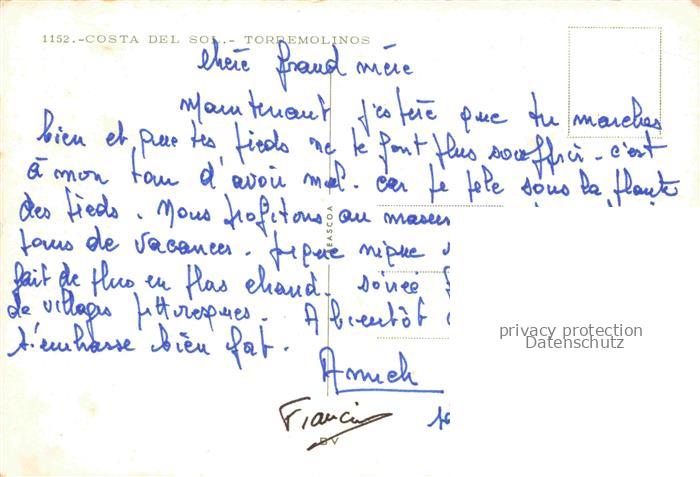 1152.-COSTA DEL SOL.- TORREMOLINOS
Chère grand mère
Maintenant j'espère que tu marches
bien et que tes pieds ne te font plus souffrir - c'est
à mon tour d'avoir mal. car je pèle sous la plante
des pieds. Nous profitons au maxi
jours de vacances. pique nique
fait de plus en plus chaud. soirée
de villages pittoresques. A bientôt
t'embrasse bien fort.
Annick
Francis
BEASCOA
BV
privacy protection
Datenschutz